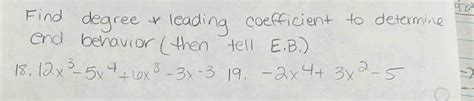 Find degree & leading coefficient to determine
end behavior (then tell E.B.)
18. 12x³-5x⁴+6x⁸-3x-3 19. -2x⁴+ 3x²-5